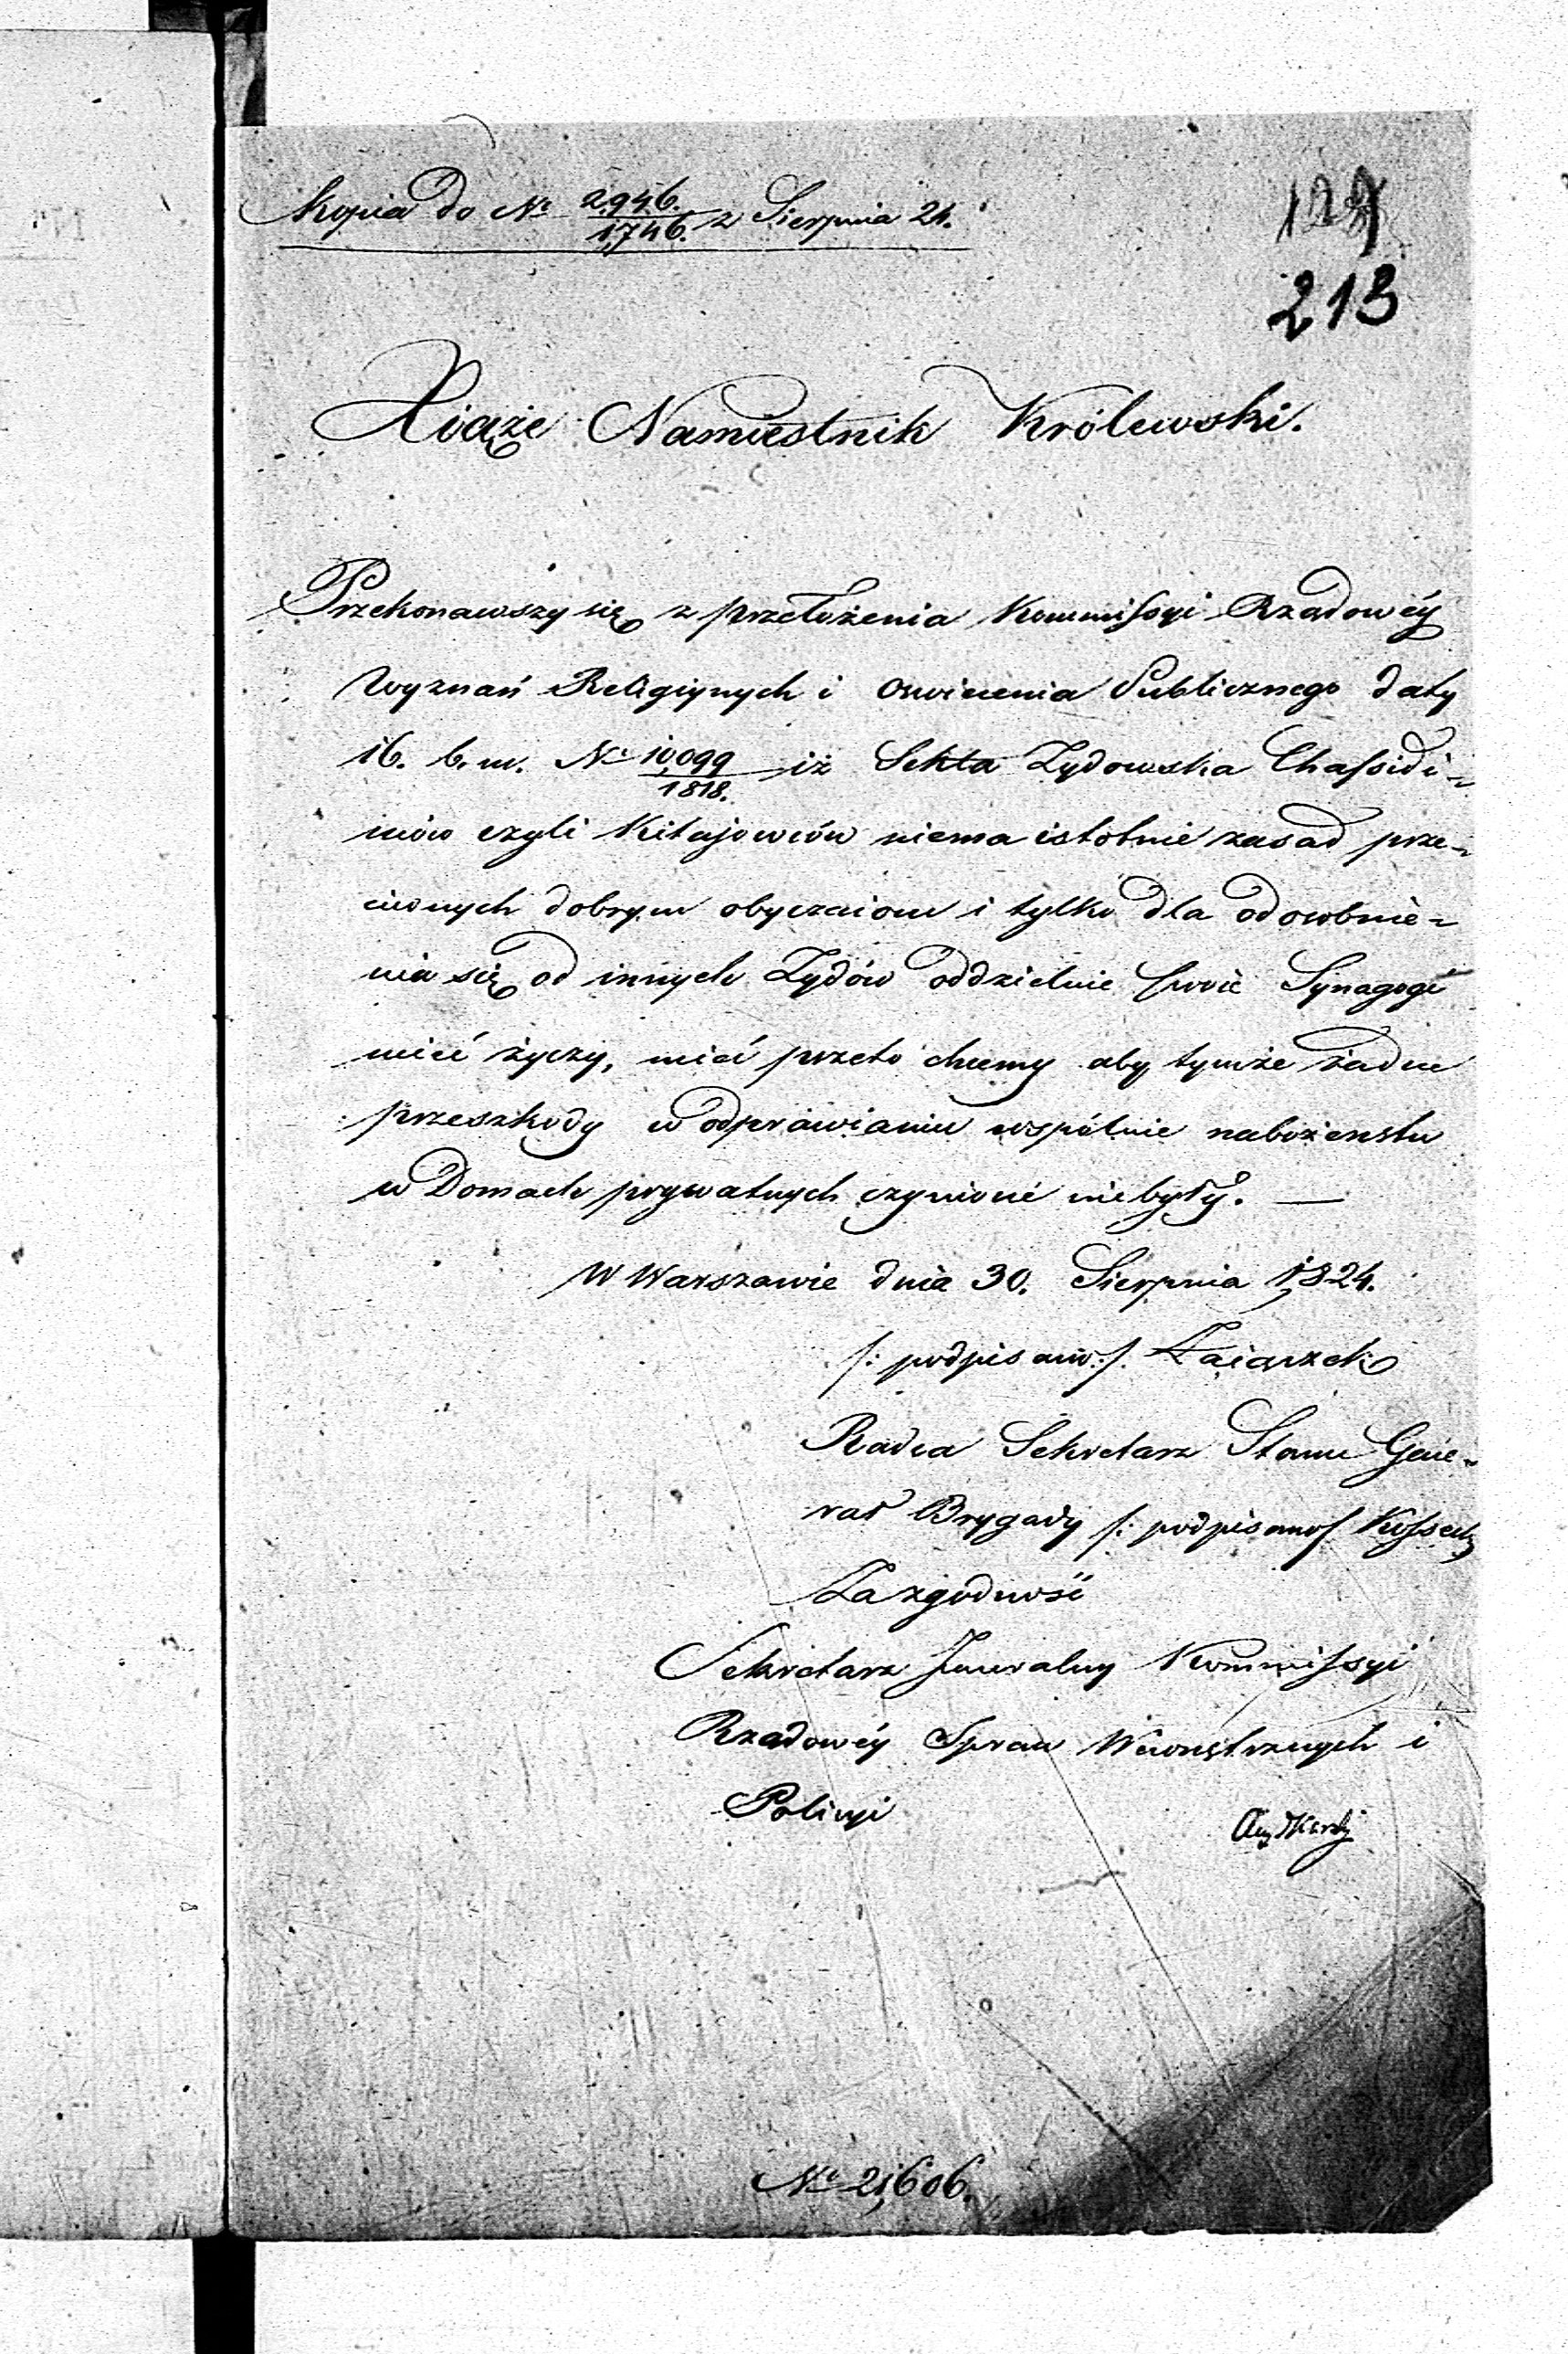 Kopia do Nr 2,946./1,746. z Sierpnia 24.
213
Xiąże Namiestnik Królewski.
Przekonawszy się z przełożenia Kommissyi Rządowéy
Wyznań Religiynych i Oswiecenia Publicznego daty
16. b. m. Nr 10,099/1818. iż Sekta Zydowska Chassidi-
mów czyli Kitajowców niema istotnie zasad prze-
ciwnych dobrym obyczaiom i tylko dla odosobnie-
nia się od innych Zydów oddzielnie swoie Synagogi
mieć życzy, mieć przeto chcemy aby tymże żadne
przeszkody w odprawianiu wspólnie nabożenstw
w Domach prywatnych czynioné niebyły. —
W Warszawie dnia 30. Sierpnia 1824.
/: podpisano :/ Zaiączek
Radca Sekretarz Stanu Gene-
rał Brygady /: podpisano/ Kossecki
Za zgodność
Sekretarz Jeneralny Kommissyi
Rządowéy Spraw Wewnętrznych i
Policyi
Nr 21,606.